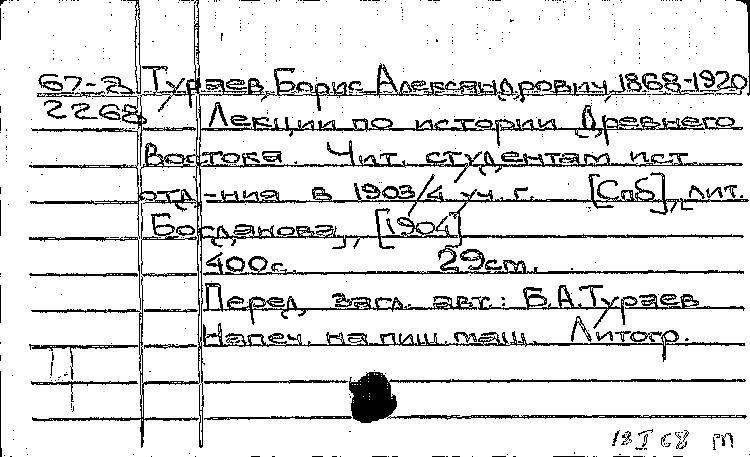 67-3 Тураев, Борис Александрович, 1868-1920
2268 Лекции по истории Древнего
Востока. Чит. студентам ист.
отд-ния в 1903/4 уч. г. [Спб], лит.
Богданова, [1904]
400с. 29см.
Перед загл. авт.: Б.А.Тураев
Напеч. на пиш. маш. Литогр.
18 I 68 m